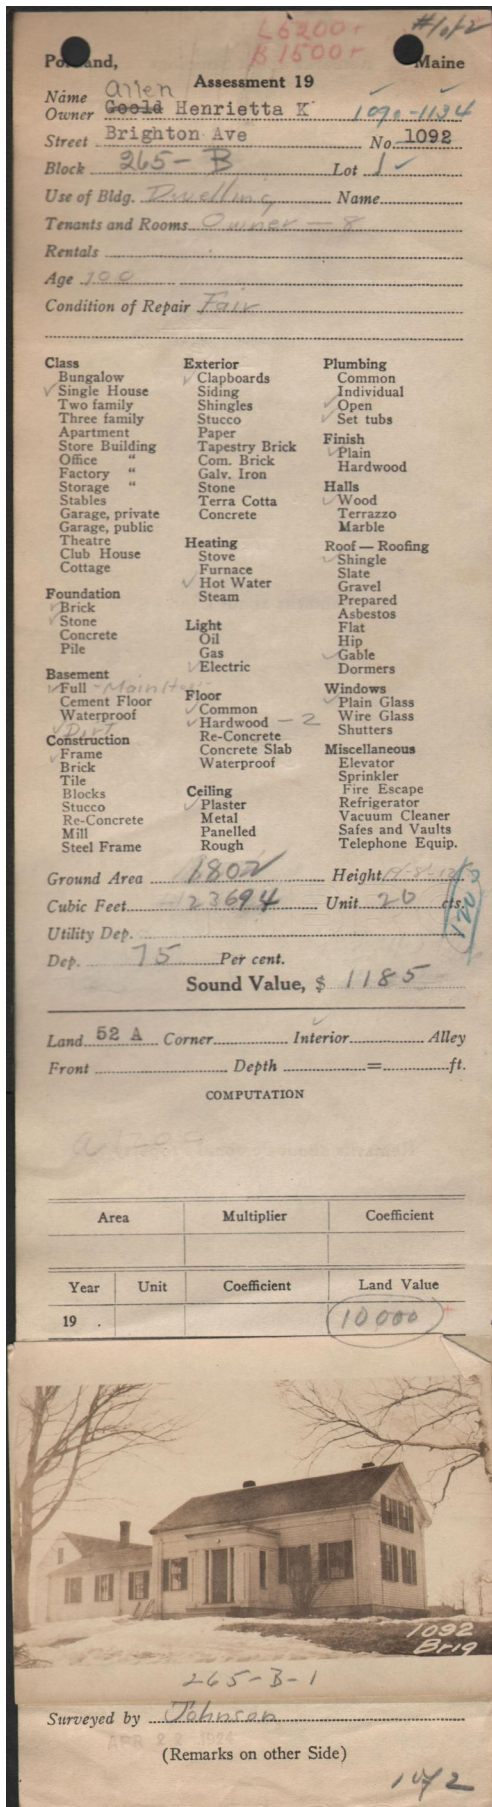 L 6200
B 1500
#1 of 2
Portland, Maine
Assessment 19
Name Allen
Owner Goold Henrietta K 1090-1134
Street Brighton Ave No. 1092
Block 265-B Lot 1
Use of Bldg. Dwelling Name
Tenants and Rooms Owner - 8
Rentals
Age 100
Condition of Repair Fair
Class
Bungalow
✓ Single House
Two family
Three family
Apartment
Store Building
Office "
Factory "
Storage "
Stables
Garage, private
Garage, public
Theatre
Club House
Cottage
Foundation
✓ Brick
✓ Stone
Concrete
Pile
Basement
✓ Full - Main
Cement Floor
Waterproof
✓ Dirt
Construction
✓ Frame
Brick
Tile
Blocks
Stucco
Re-Concrete
Mill
Steel Frame
Exterior
✓ Clapboards
Siding
Shingles
Stucco
Paper
Tapestry Brick
Com. Brick
Galv. Iron
Stone
Terra Cotta
Concrete
Heating
Stove
Furnace
✓ Hot Water
Steam
Light
Oil
Gas
✓ Electric
Floor
✓ Common
✓ Hardwood - 2
Re-Concrete
Concrete Slab
Waterproof
Ceiling
✓ Plaster
Metal
Panelled
Rough
Plumbing
Common
Individual
✓ Open
✓ Set tubs
Finish
✓ Plain
Hardwood
Halls
✓ Wood
Terrazzo
Marble
Roof — Roofing
✓ Shingle
Slate
Gravel
Prepared
Asbestos
Flat
Hip
✓ Gable
Dormers
Windows
✓ Plain Glass
Wire Glass
Shutters
Miscellaneous
Elevator
Sprinkler
Fire Escape
Refrigerator
Vacuum Cleaner
Safes and Vaults
Telephone Equip.
Ground Area 1802 Height
Cubic Feet 23694 Unit 20 cts.
Utility Dep.
Dep. 75 Per cent.
Sound Value, $ 1185
Land 52 A Corner Interior Alley
Front Depth = ft.
COMPUTATION
Area Multiplier Coefficient
Year Unit Coefficient Land Value
19 . 10000
1092
Brig
265-B-1
Surveyed by Johnson
APR 2 1924
(Remarks on other Side)
1 of 2